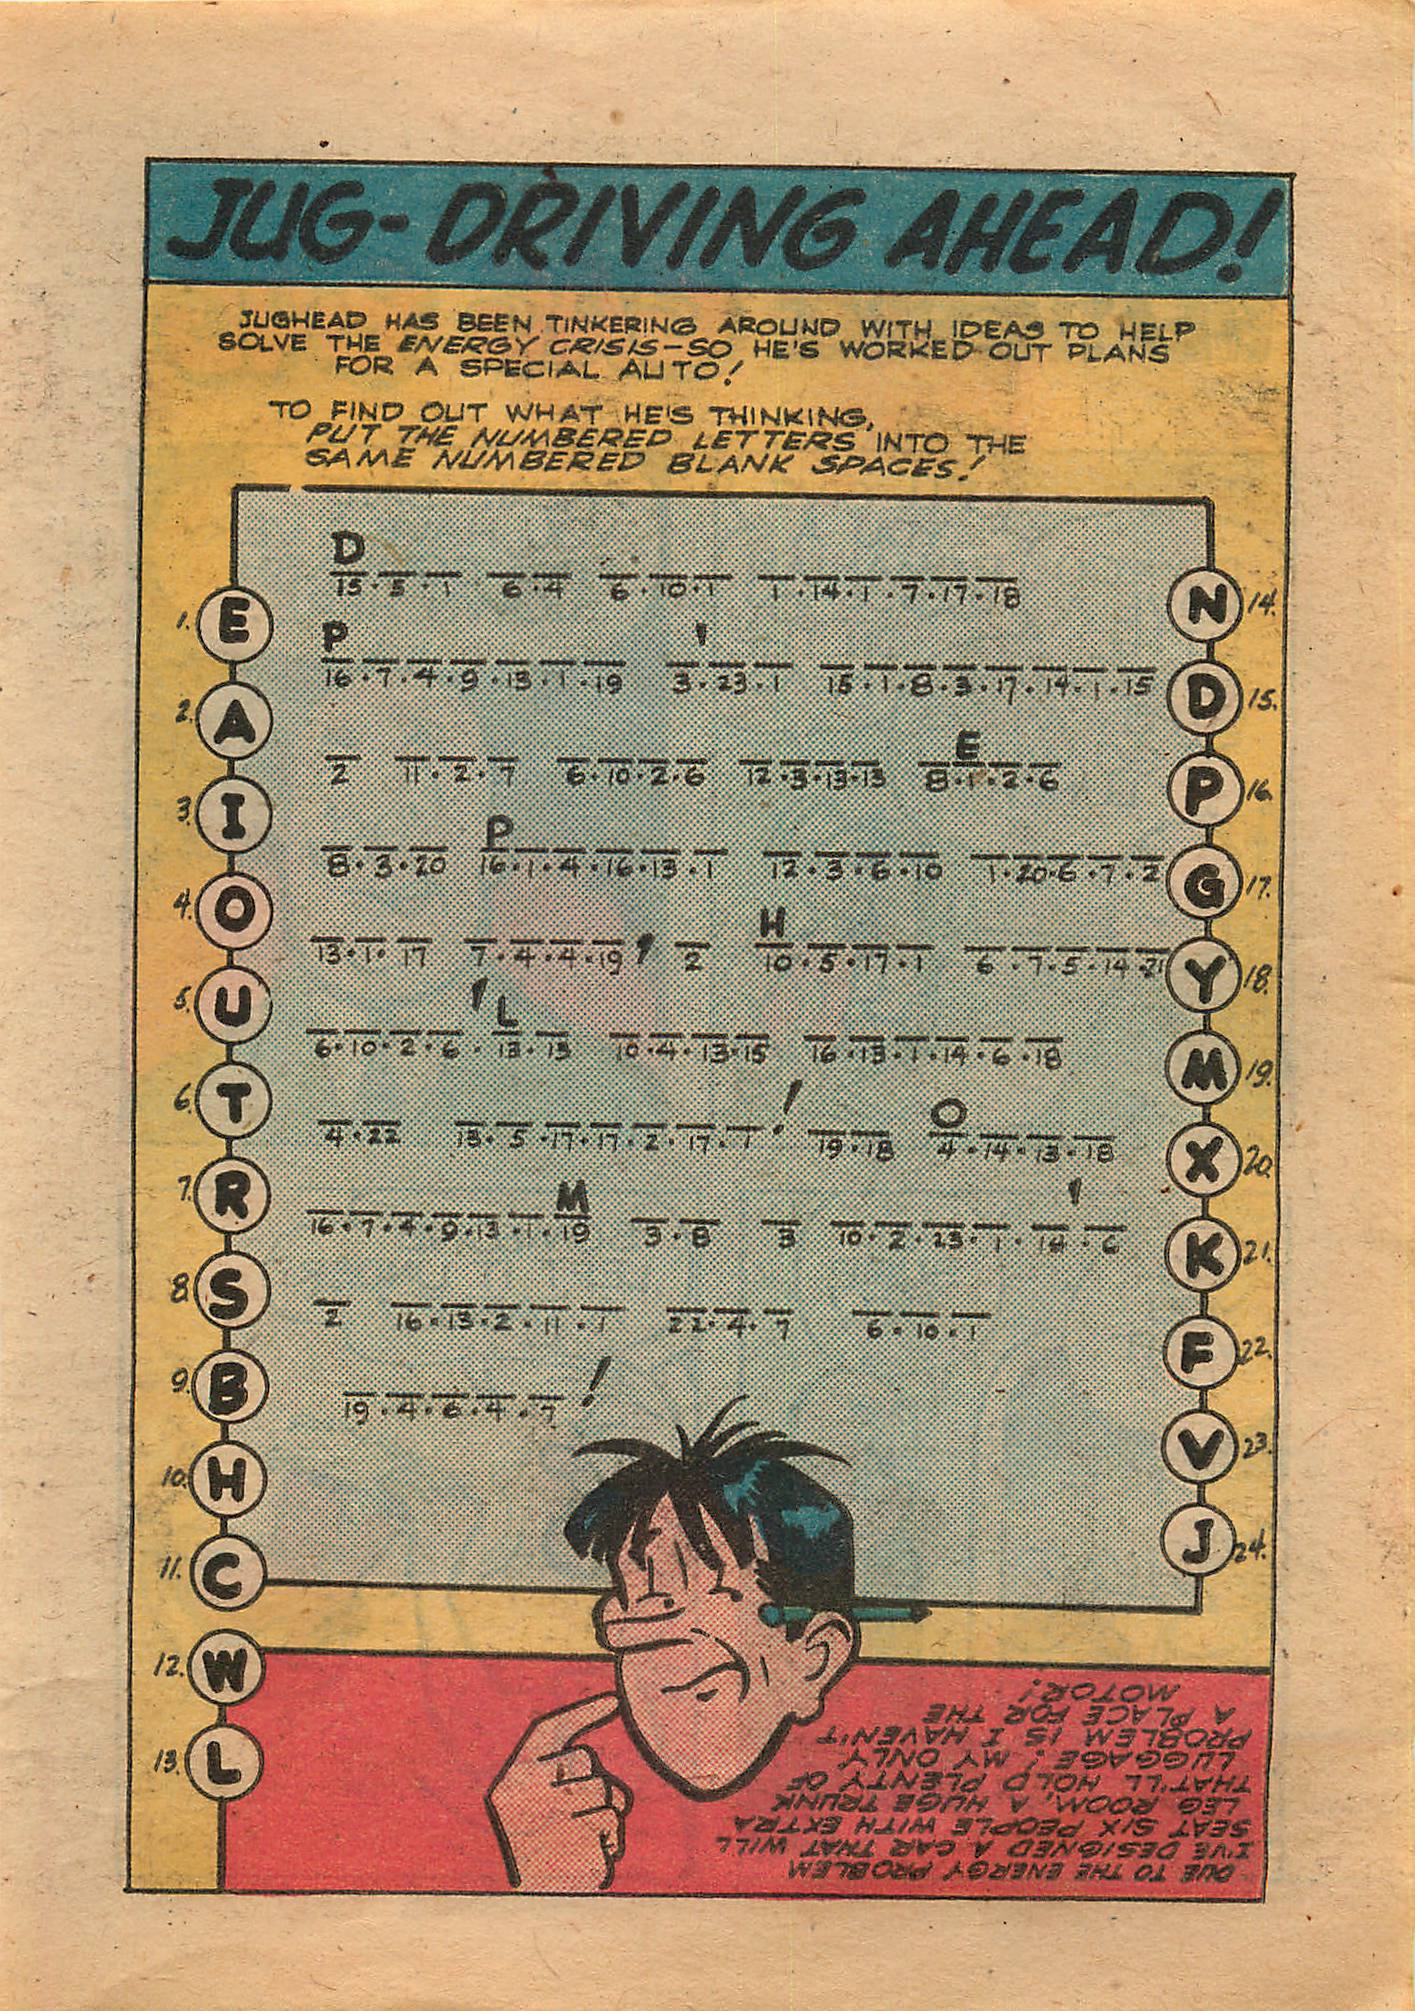 JUG-DRIVING AHEAD!
JUGHEAD HAS BEEN TINKERING AROUND WITH IDEAS TO HELP
SOLVE THE ENERGY CRISIS—SO HE'S WORKED OUT PLANS
FOR A SPECIAL AUTO!
TO FIND OUT WHAT HE'S THINKING,
PUT THE NUMBERED LETTERS INTO THE
SAME NUMBERED BLANK SPACES!
D
15.5.1 6.4 6.10.1 1.14.1.7.17.18
P '
16.7.4.9.13.1.19 3.23.1 15.1.8.3.17.14.1.15
E
2 11.2.7 6.10.2.6 12.3.13.13 8.1.2.6
P
8.3.20 16.1.4.16.13.1 12.3.6.10 1.20.6.7.2
H
13.1.17 7.4.4.19, 2 10.5.17.1 6.7.5.14.21
' L
6.10.2.6.13.13 10.4.13.15 16.13.1.14.6.18
O
4.22 13.5.17.17.2.17.1! 19.18 4.14.13.18
M '
16.7.4.9.13.1.19 3.8 3 10.2.23.1.14.6
2 16.13.2.11.1 22.4.7 6.10.1
19.4.6.4.7!
1. E
2. A
3. I
4. O
5. U
6. T
7. R
8. S
9. B
10. H
11. C
12. W
13. L
N 14.
D 15.
P 16.
G 17.
Y 18.
M 19.
X 20.
K 21.
F 22.
V 23.
J 24.
DUE TO THE ENERGY PROBLEM
I'VE DESIGNED A CAR THAT WILL
SEAT SIX PEOPLE WITH EXTRA
LEG ROOM, A HUGE TRUNK
THAT'LL HOLD PLENTY OF
LUGGAGE! MY ONLY
PROBLEM IS I HAVEN'T
A PLACE FOR THE
MOTOR!